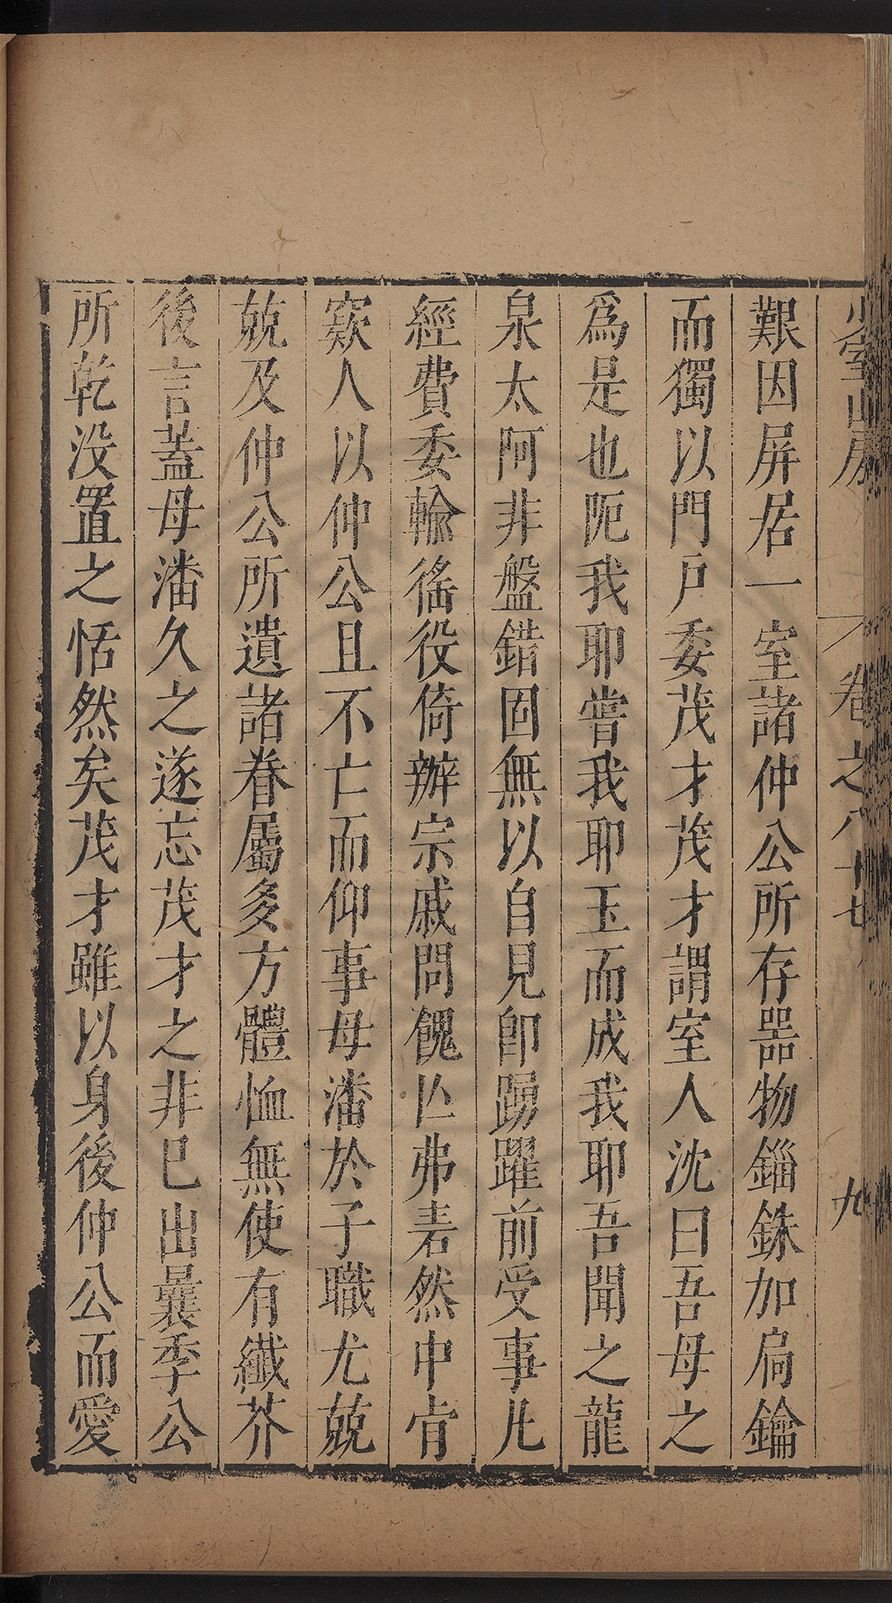 艱因屏居一室諸仲公所存器物錙銖加扃鑰
而獨以門戶委茂才茂才謂室人沈曰吾母之
爲是也阨我耶嘗我耶玉而成我耶吾聞之龍
泉太阿非盤錯固無以自見卽踴躍前受事凡
經費委輸徭役倚辦宗戚問餽亡弗砉然中肯
窾人以仲公且不亡而仰事母潘於子職尤兢
兢及仲公所遺諸眷屬多方體恤無使有纖芥
後言蓋母潘久之遂忘茂才之非巳出曩季公
所乾没置之恬然矣茂才雖以身後仲公而愛
卷之八十七
九